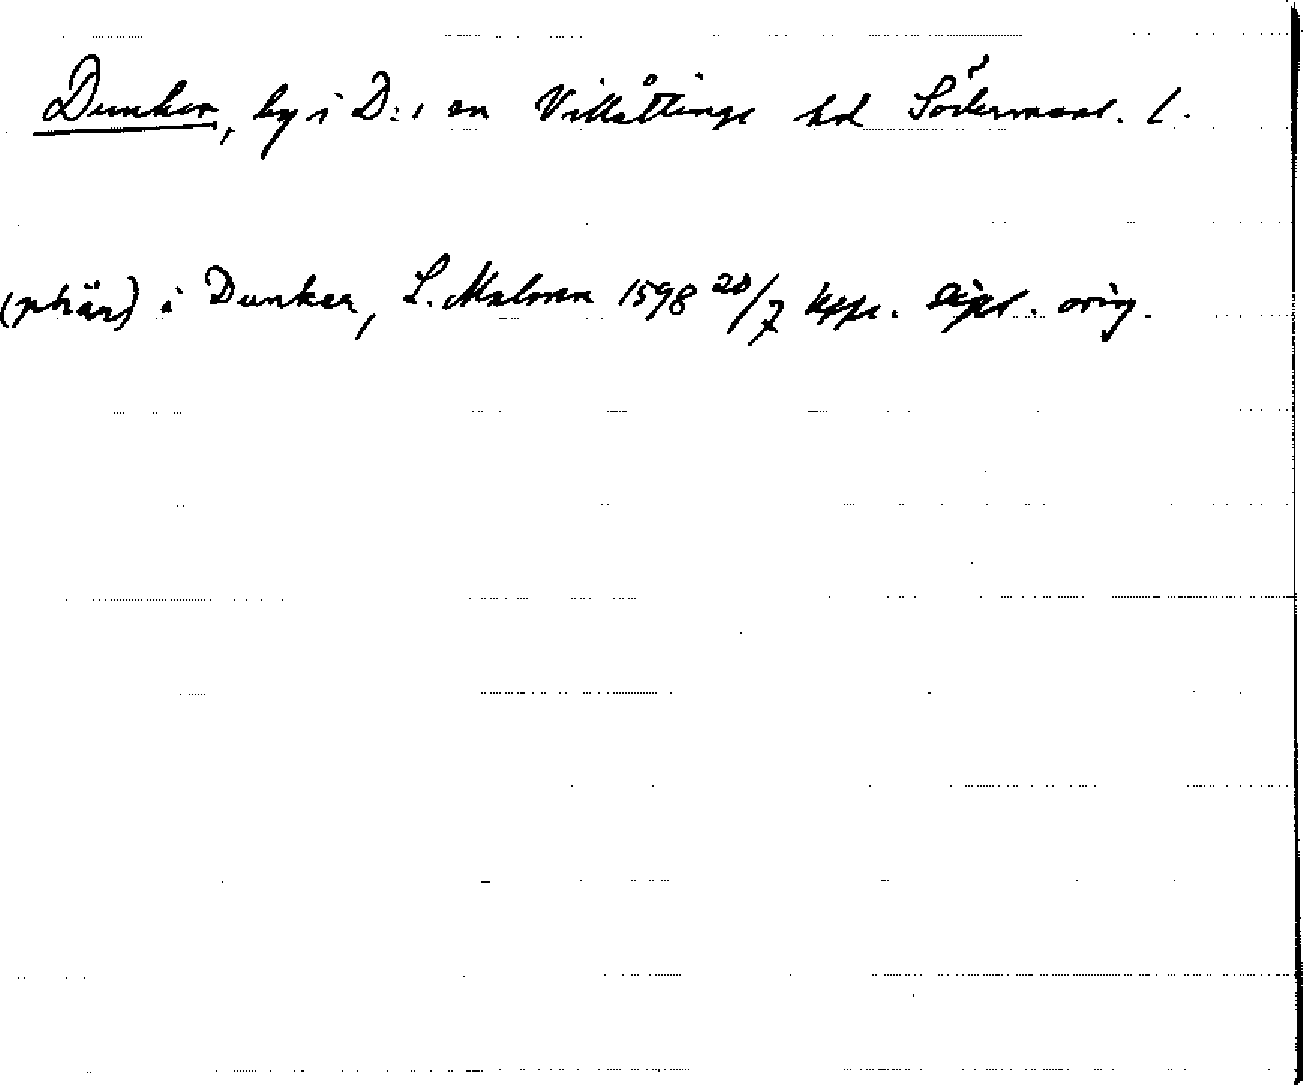 Dunker, by i D:s sn Villåttinge hd Södermanl. l.
(prhär) i Dunker, L. Malmen 1598 20/7 dipl. orig.